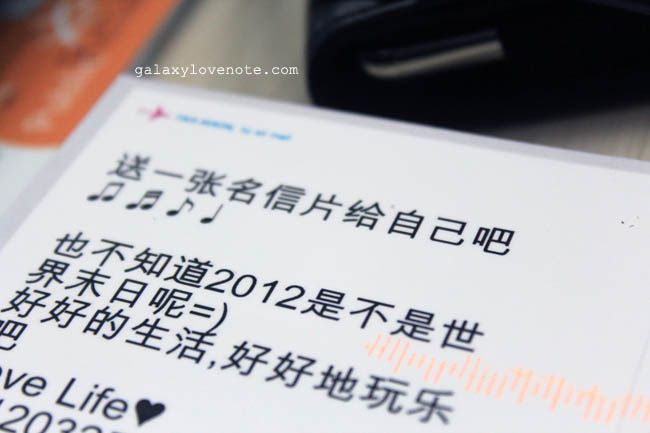 galaxylovenote.com
送一张名信片给自己吧
♫ ♬ ♪ ♩
也不知道2012是不是世
界末日呢=)
好好的生活,好好地玩乐
吧
ove Life♥